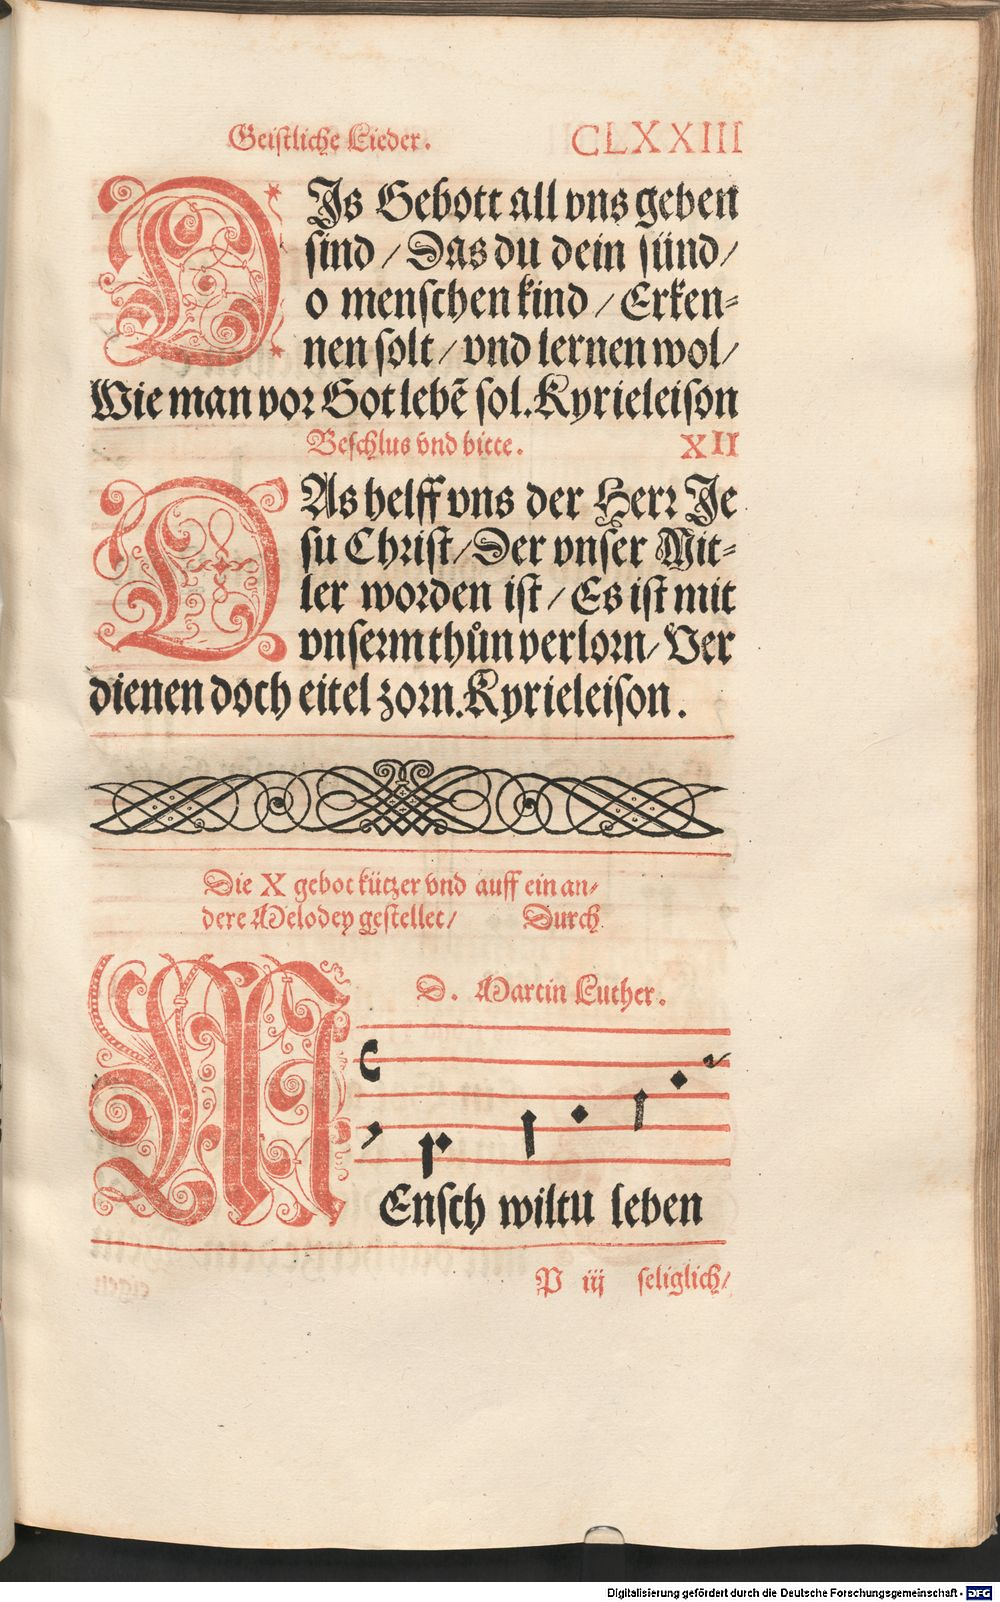 Geistliche Lieder. CLXXIII
DJs Gebott all vns geben
sind / Das du dein sünd /
o menschen kind / Erken-
nen solt / vnd lernen wol /
Wie man vor Got lebē sol. Kyrieleison
Beschlus vnd bitte. XII
DAs helff vns der Herr Je
su Christ / Der vnser Mit-
ler worden ist / Es ist mit
vnserm thůn verlorn / Ver
dienen doch eitel zorn. Kyrieleison.
Die X gebot kützer vnd auff ein an-
dere Melodey gestellet / Durch
D. Martin Luther.
MEnsch wiltu leben
P iij seliglich /
Digitalisierung gefördert durch die Deutsche Forschungsgemeinschaft - DFG